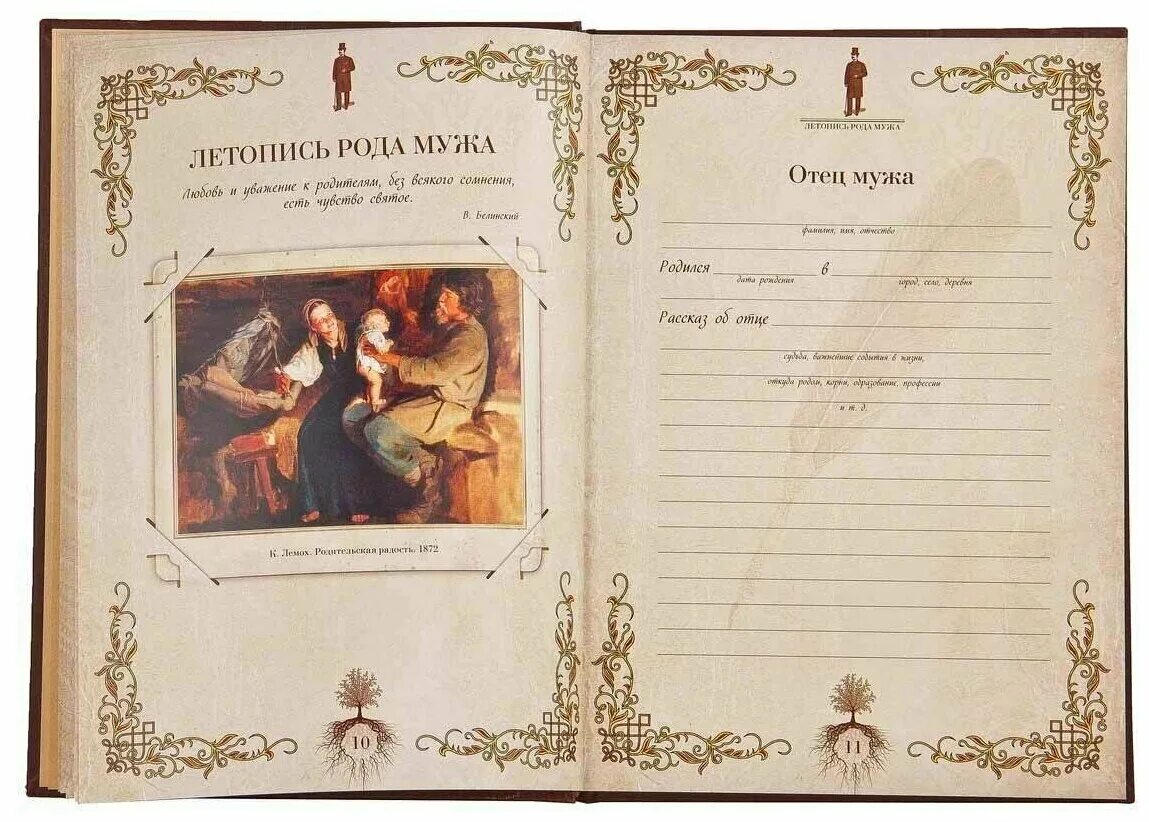 ЛЕТОПИСЬ РОДА МУЖА
Любовь и уважение к родителям, без всякого сомнения,
есть чувство святое.
В. Белинский
К. Лемох. Родительская радость. 1872
10
ЛЕТОПИСЬ РОДА МУЖА
Отец мужа
фамилия, имя, отчество
Родился в
дата рождения город, село, деревня
Рассказ об отце
судьба, важнейшие события в жизни,
откуда родом, корни, образование, профессии
и т. д.
11